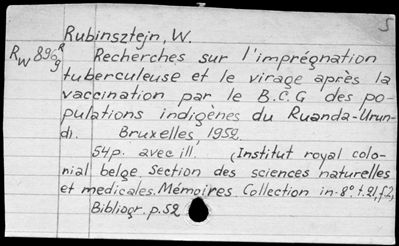 S
Rubinsztejn, W.
RW 896 R 9
Recherches sur l'imprégnation
tuberculeuse et le virage après la
vaccination par le B.C.G des po-
pulations indigènes du Ruanda-Urun-
di. Bruxelles, 1952.
54p. avec ill. (Institut royal colo-
nial belge. Section des sciences naturelles
et medicales. Mémoires. Collection in-8° t.21, f.2,
Bibliogr. p.52